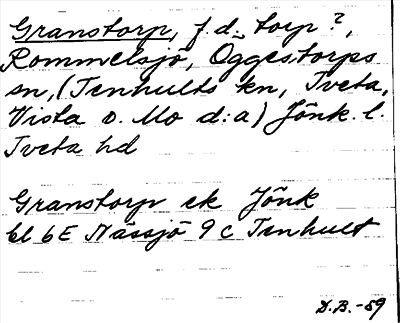 Granstorp, f.d. torp?,
Rommelsjö, Öggestorps
sn, (Tenhults kn, Tveta,
Vista o. Mo d:a) Jönk. l.
Tveta hd
Granstorp ek Jönk
bl 6E Nässjö 9c Tenhult
D.B. -59